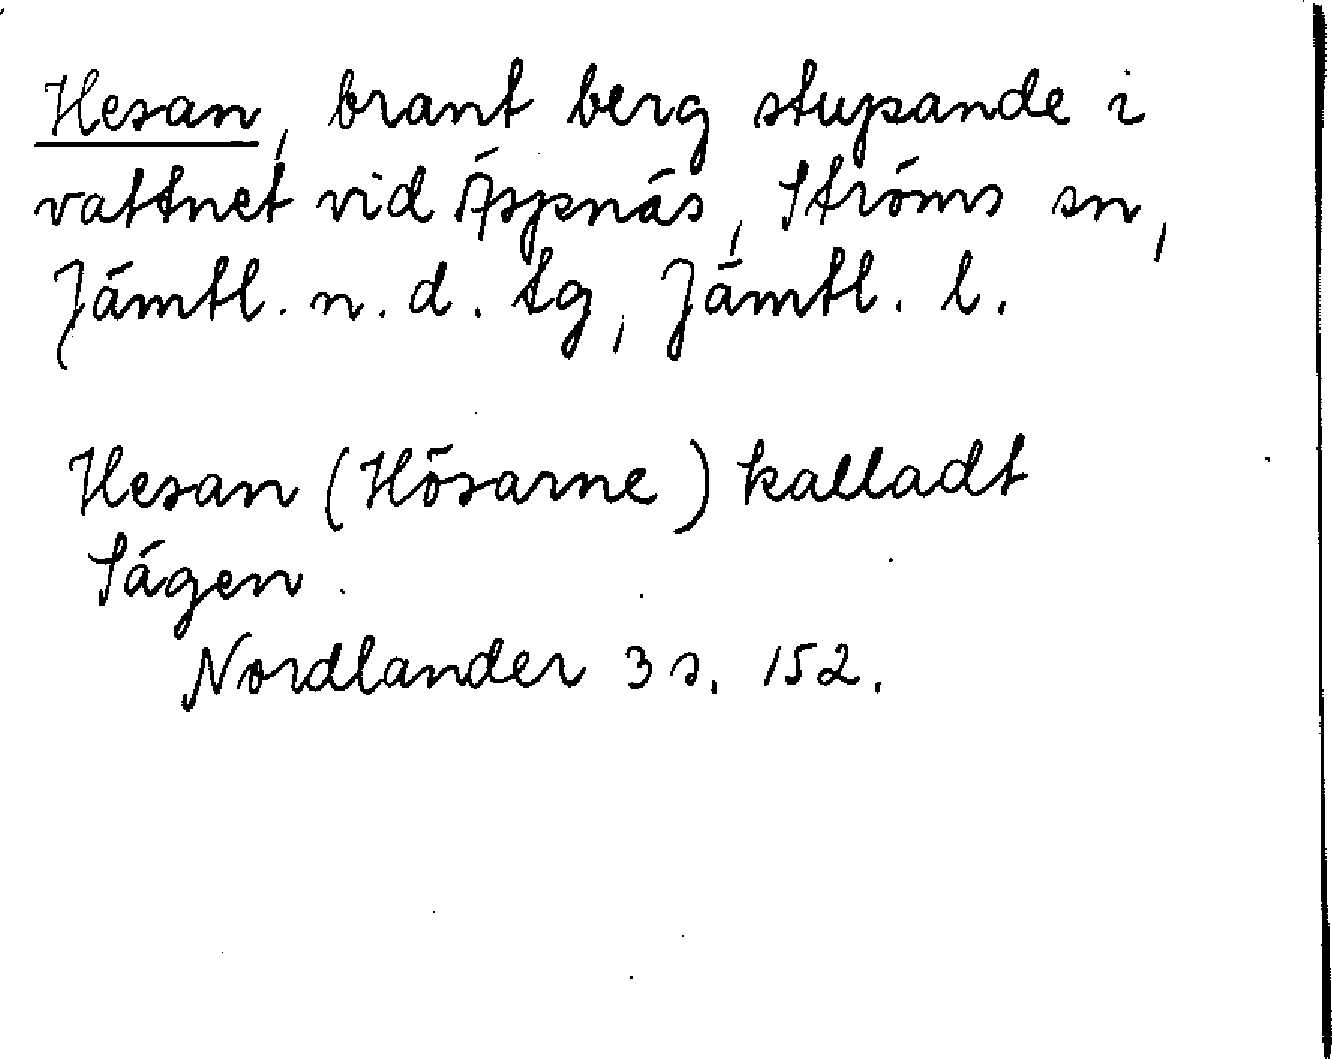 Hesan, brant berg stupande i
vattnet vid Äspnäs, Ströms sn,
Jämtl. n. d. tg, Jämtl. l.
Hesan (Hösarne) kalladt
Sägen
Nordlander 3 s. 152.